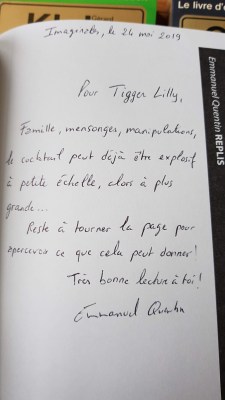 Gérard
Le livre d'o
Emmanuel Quentin REPLIS
Imaginales, le 24 mai 2019
Pour Tigger Lilly,
Famille, mensonges, manipulations,
le cocktail peut déjà être explosif
à petite échelle, alors à plus
grande...
Reste à tourner la page pour
apercevoir ce que cela peut donner !
Très bonne lecture à toi !
Emmanuel Quentin